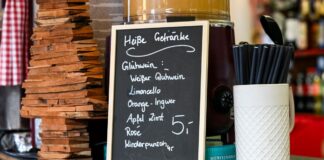 Heiße Getränke
Glühwein:
Weißer Glühwein
Limoncello
Orange-Ingwer
Apfel Zimt
Rosé
5,-
Winderpunsch